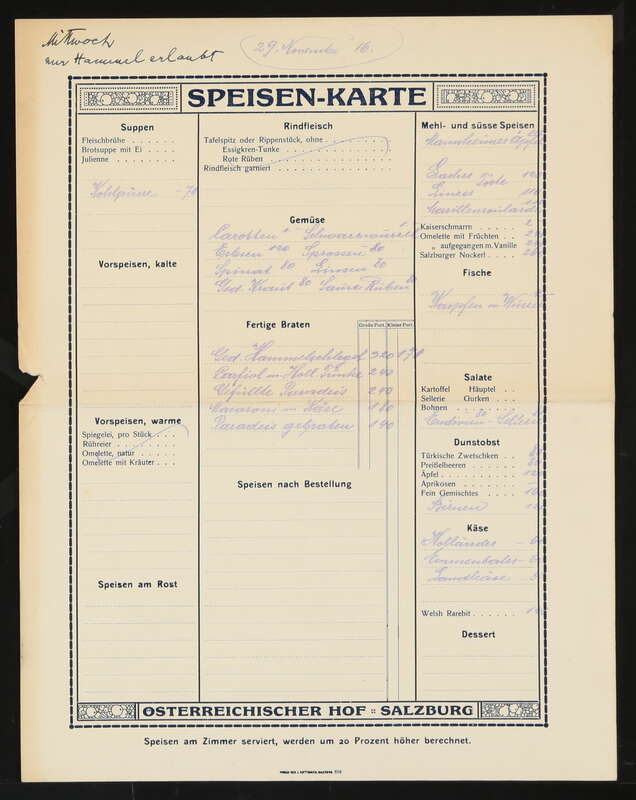 Mittwoch
nur Hammel erlaubt
29. November 16.
SPEISEN-KARTE
Suppen
Fleischbrühe
Brotsuppe mit Ei
Julienne
Kohlpüree - 70
Vorspeisen, kalte
Vorspeisen, warme
Spiegelei, pro Stück
Rühreier
Omelette, natur
Omelette mit Kräuter
Speisen am Rost
Rindfleisch
Tafelspitz oder Rippenstück, ohne
Essigkren-Tunke
Rote Rüben
Rindfleisch garniert
Gemüse
Carotten 1 - Schwarzwurzel 1
Erbsen 120 Sprossen 80
Spinat 80 Linsen 80
Ged. Kraut 80 Saure Rüben 80
Fertige Braten
Große Port. Kleine Port.
Ged. Hammelschlegel 320 170
Carfiol m. Holl. Tunke 240
Gefüllte Paradeis 240
Macaroni m. Käse 180
Paradeis gebraten 140
Speisen nach Bestellung
Mehl- und süsse Speisen
Linzer
Kaiserschmarrn
Omelette mit Früchten
„ aufgegangen m. Vanille
Salzburger Nockerl
Fische
Karpfen
Salate
Kartoffel Häuptel
Sellerie Gurken
Bohnen
Endivien - Sellerie
Dunstobst
Türkische Zwetschken
Preißelbeeren
Äpfel
Aprikosen
Fein Gemischtes
Birnen
Käse
Holländer
Emmenthaler
Landkäse
Welsh Rarebit
Dessert
ÖSTERREICHISCHER HOF :: SALZBURG
Speisen am Zimmer serviert, werden um 20 Prozent höher berechnet.